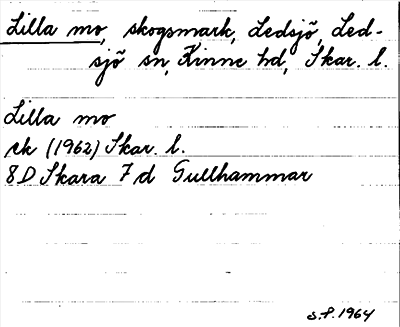 Lilla mo, skogsmark, Ledsjö, Led-
sjö sn, Kinne hd, Skar. l.
Lilla mo
ek (1962) Skar. l.
8D Skara 7d Gullhammar
S.F. 1964